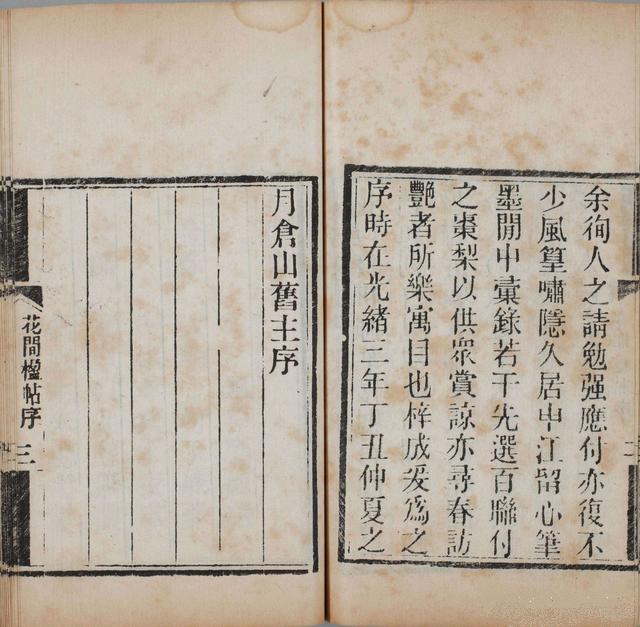 余徇人之請勉强應付亦復不
少風篁嘯隱久居申江留心筆
墨閒中彙錄若干先選百聯付
之棗梨以供衆賞諒亦尋春訪
艷者所樂寓目也梓成爰爲之
序時在光緒三年丁丑仲夏之
月倉山舊主序
花間楹帖序
三